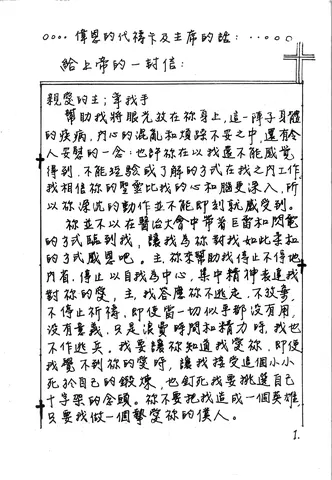 偉恩的代禱卡及主席的話:
給上帝的一封信:
親愛的主;耶穌
幫助我將眼光放在祢身上,這一陣子身體
的疾病、內心的混亂和煩躁不安之中,還有令
人安慰的一念:也許祢在以我還不能感覺
得到、不能經驗或了解的方式在我之內工作
我相信祢的聖靈比我的心和腦更深入,所
以祢深沉的動作並不能即刻就感受到。
祢並不以在醫治大會中帶著巨雷和閃電
的方式臨到我,讓我為祢對我如此柔和
的方式感恩吧。主,祢來幫助我停止不停地
內省,停止以自我為中心,集中精神表達我
對祢的愛,主,我答應祢不逃走、不放棄、
不停止祈禱,即使當一切似乎都沒有用,
沒有意義、只是浪費時間和精力時,我也
不作逃兵。我要讓祢知道我愛祢,即使
我覺不到祢的愛時,讓我接受這個小小
死於自己的鍛煉,也釘死我要挑選自己
十字架的念頭。祢不要把我造成一個英雄
只要我做一個摯愛祢的僕人。
1.